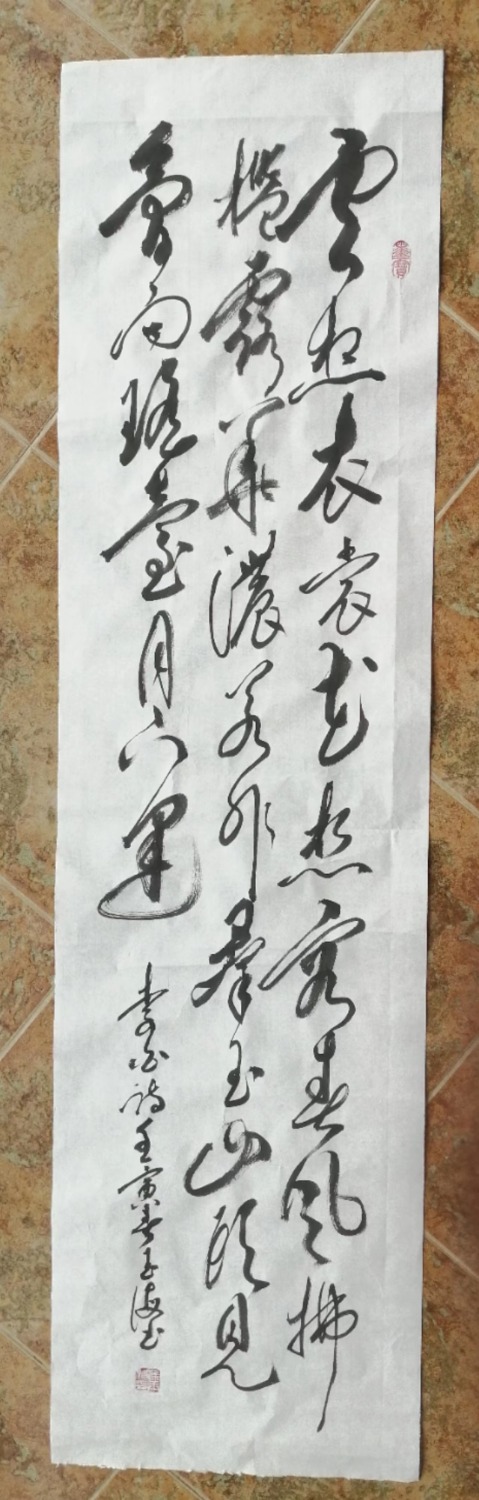 雲想衣裳花想容春風拂
檻露華濃若非羣玉山頭見
會向瑤臺月下逢
李白詩壬寅春玉海书